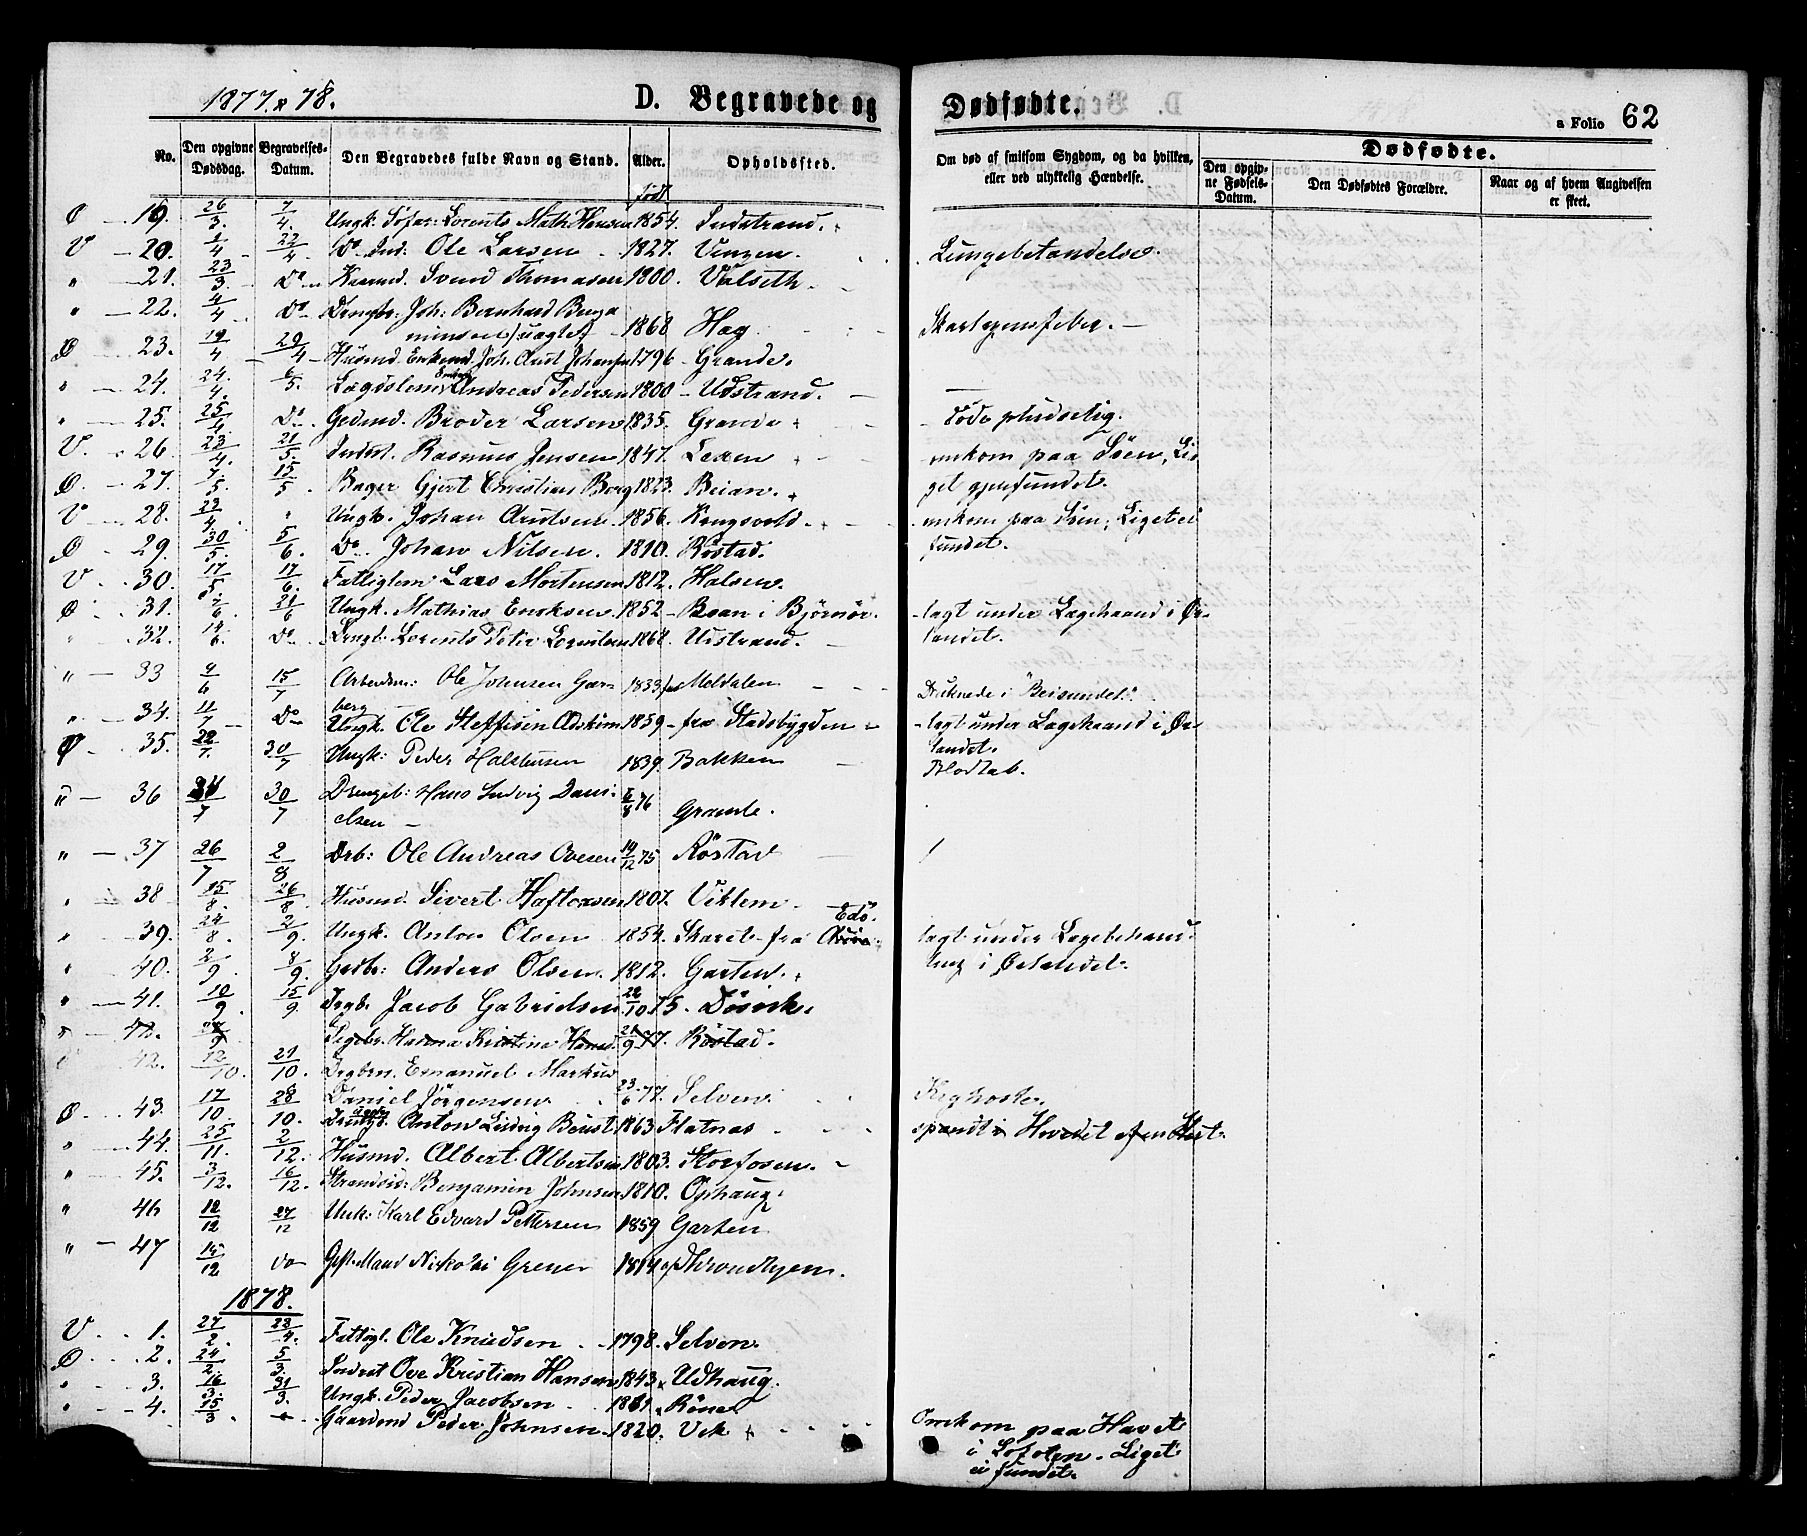 1877 & 78.
D. Begravede og Dødfødte.
a Folio 62
No.
Den opgivne Dødsdag.
Begravelses-Datum.
Den Begravedes fulde Navn og Stand.
Alder.
Opholdssted.
Om død af smitsom Sygdom, og da hvilken, eller ved ulykkelig Hændelse.
Dødfødte.
Den opgivne Fødsels-Datum.
Den Dødfødtes Forældre.
Naar og af hvem Angivelsen er skeet.
født
Ø — 19. 26/3. 7/4. Ungk. Lorents Math. Hansen 1854. Indstrand.
V — 20. 1/4 22/4 Do Ind. Ole Larsen 1827. Vingen. Lungebetændelse.
" — 21. 23/3 Do Svend Thomasen 1800. Valseth.
" — 22. 4/4 Do Drengbr. Joh: Bernhard Benja
minsen (uægte) 1868 Hag Skarlagensfeber.
Ø — 23. 19/4 29/4 Husmd. Enkemd. Joh. Arnt Johansen 1796 Grande.
" — 24. 24/4. 6/5. Lægdslem Andreas Pedersen 1800 Udstrand.
" — 25. 25/4 Do Gedmd. Broder Larsen 1835. Grande døde pludselig.
V. 26. 23/4. 21/5. Inderst. Rasmus Jensen 1847. Lexen omkom paa Søen, Li
Ø. 27. 7/5. 15/5 Bager Gjert Christian Borg 1823. Beian. get gjenfundet.
V 28. 23/4 " Ungk. Johan Arntsen 1856. Kongsvold. omkom paa Søen, Liget ei
Ø 29. 30/5. 5/6. Do Johan Nilsen. 1810. Røstad. fundet.
V 30. 17/5 17/6. Fattiglem Lars Mortensen 1812. Halsen.
Ø 31. 7/6 21/6 Ungk. Mathias Eriksen 1852 Besan i Bjørnør. lagt under Lægehaand i Ør-
" 32. 14/6. Do Lorents Peter Lorentsen 1868. Udstrand. landet.
" — 33 9/6 15/7 Arbeidsm: Ole Johnsen Garn
berg 1833 fra Meldalen Druknede i "Beisundet".
" 34. 11/7 Do Ungk. Ole Steffesen 1859 fra Stadsbygden lagt under Lægehaand i Ør-
landet.
Ø 35. 22/7. 30/7 Ungk: Peder Halstensen 1839. Bakken Blodtab.
" — 36 24/7 30/7 Drengeb: Hans Ludvig Dani-
elsen 6/8 76 Grande.
" — 37 26/7 2/8 Drb: Ole Andreas Ovesen 19/12 75 Røstad
" 38 15/8. 26/8. Husmd. Sivert Haftorsen 1807. Viklem
" 39. 24/8. 2/9. Ungk. Anton Olsen 1854. Skaret fra Edø. lagt under Lægebehand
" 40. 2/9. 8/9. Gedbr: Anders Olsen. 1812. Garten. ling i Ørlandet.
" 41. 10/9. 15/9 Drgb. Jacob Gabrielsen 22/10 75. Døsvik.
" — 42. Pigebr. Hanna Kristina Hansd. 21/9 77. Røstad.
42. 12/10. 21/10. Drgbrn. Emanuel Markus
Daniel Jørgensen 23/6 77. Selven Kighoste.
Ø. 43. 17/10. 28/10. Anton Ludvig 1863 Flatnas spændt i Hovedet af en Hest.
" 44. 25/11. 2/12. Husmd. Albert Albertsen 1803. Storfosen.
" 45. 3/12. 16/12. Strandsid: Benjamin Johnsen 1810. Ophaug.
" 46 12/12 27/12 Unk: Karl Edvard Pettersen 1859 Garten
" — 47 15/12 do Gift Mand Nikolai Grener 1814 af Throndhjem.
1878.
V. 1. 27/2. 23/4. Fattigl. Ole Knudsen 1798. Selven.
Ø 2. 24/2. 5/3. Indrst Ove Kristian Hansen 1843 Udhaug.
" 3. 16/3. 31/3. Ungk. Peder Jacobsen Røner
" 4. 15/3 Gaardmd Peder Johnsen 1820. Vik Omkom paa Havet
i Lofoten. Liget
ei fundet.